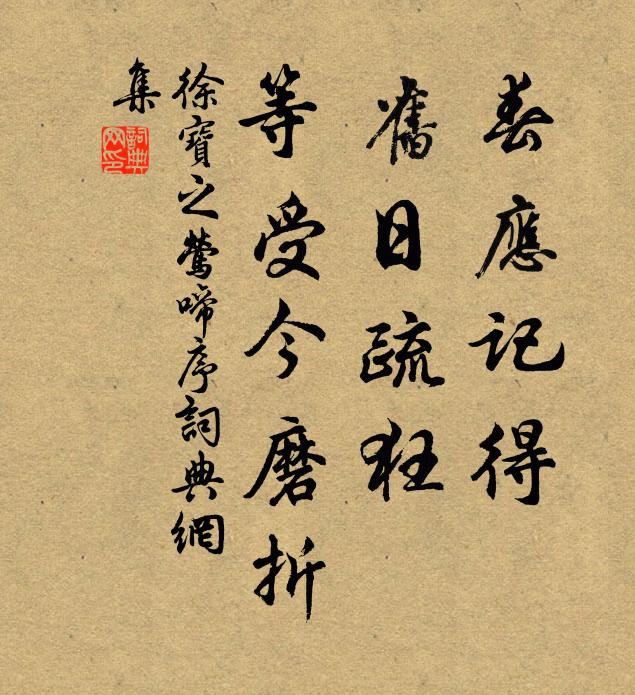 春應記得
舊日疏狂
等受今磨折
徐寶之鶯啼序詞典網
集
詞典
网印